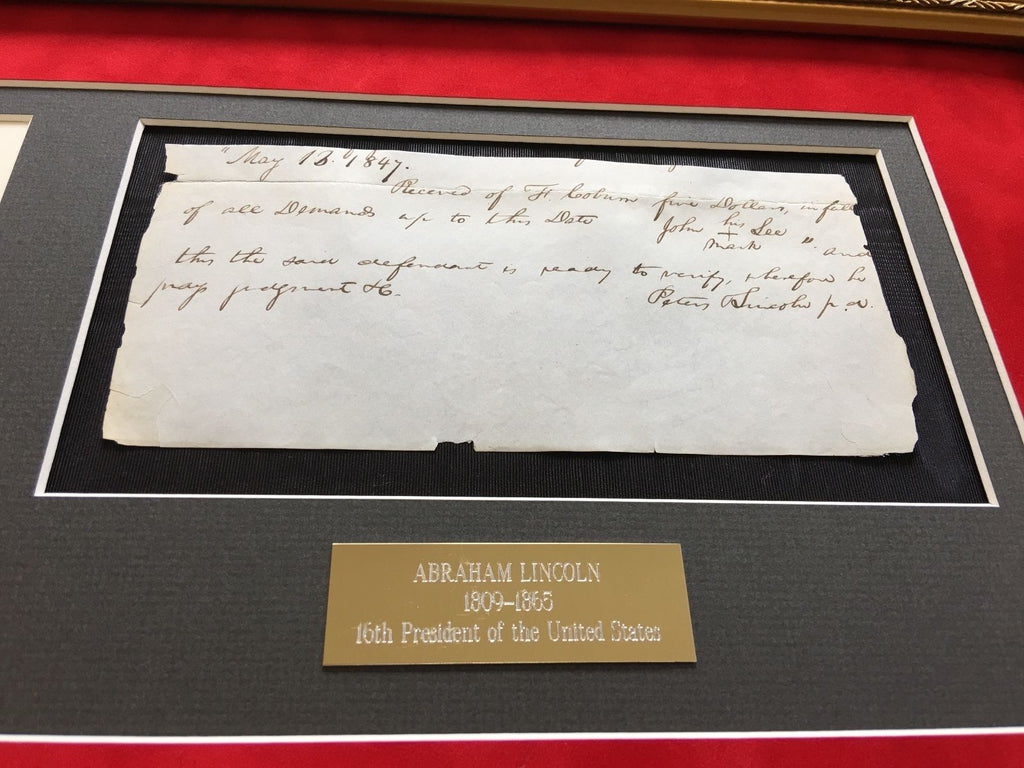 "May 13. 1847.
Received of F. Coburn five Dollars, in full
of all Demands up to this Date John his Lee
+
mark " and
this the said defendant is ready to verify, wherefore he
prays judgment &c. Peters & Lincoln p. d.
ABRAHAM LINCOLN
1809-1865
16th President of the United States